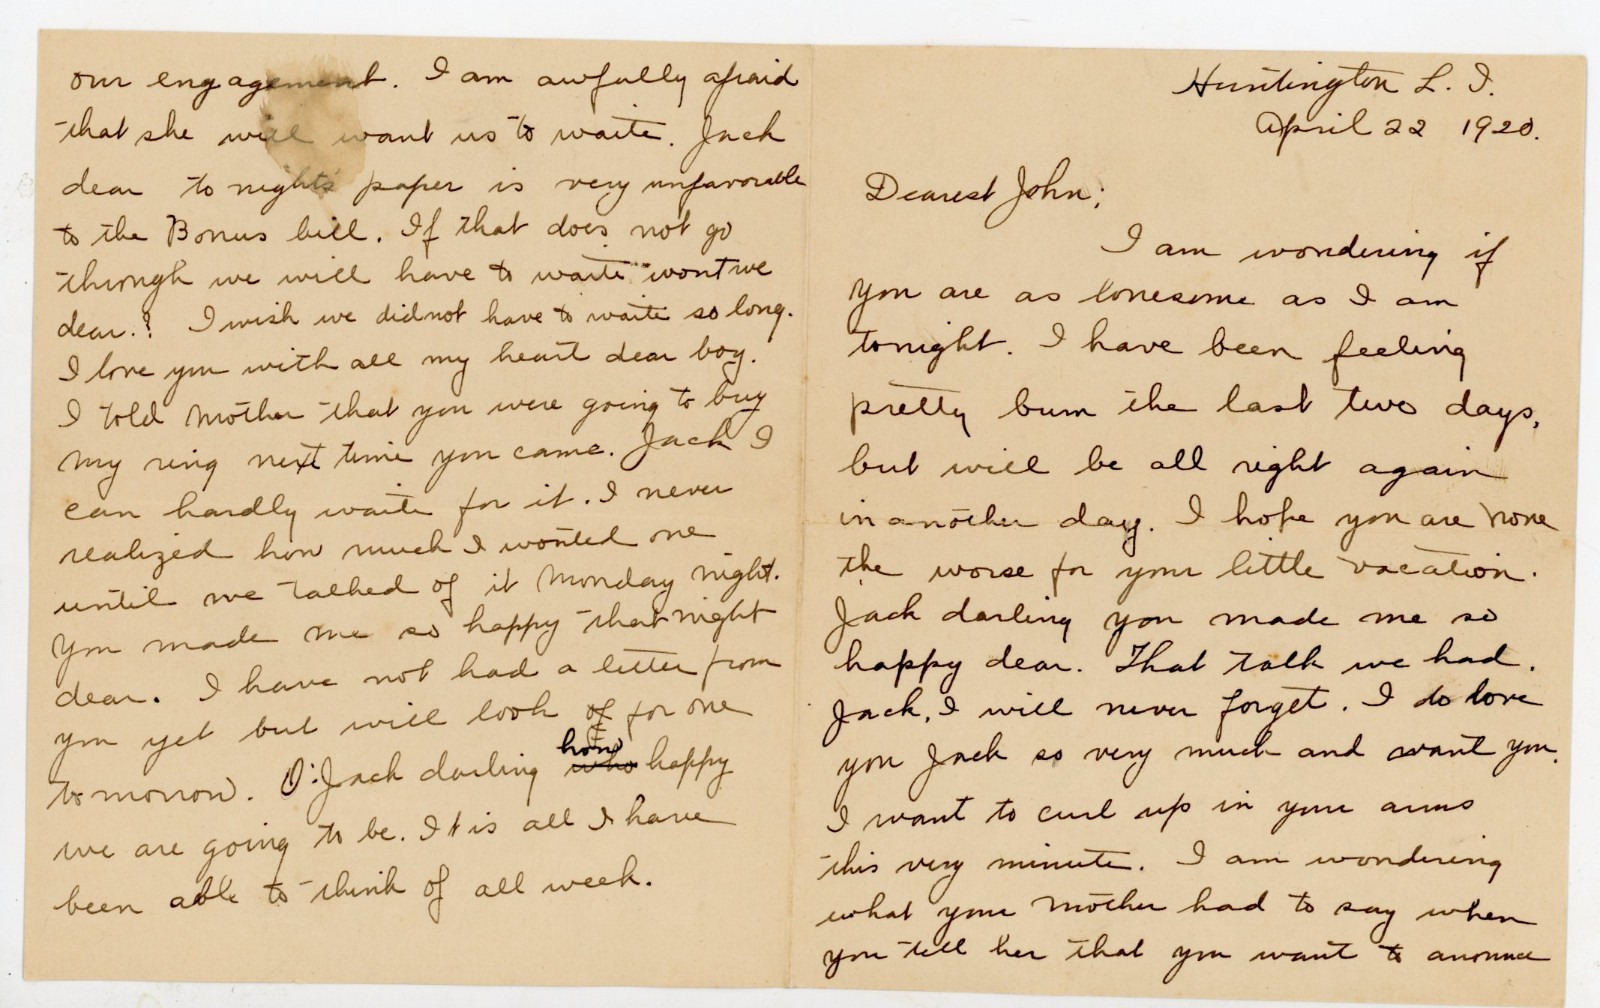 Huntington L. I.
April 22 1920.
Dearest John;
I am wondering if
you are as lonesome as I am
tonight. I have been feeling
pretty bum the last two days,
but will be all right again
in another day. I hope you are none
the worse for your little vacation.
Jack darling you made me so
happy dear. That talk we had.
Jack, I will never forget. I do love
you Jack so very much and want you.
I want to curl up in your arms
this very minute. I am wondering
what your Mother had to say when
you tell her that you want to anounce
our engagement. I am awfully afraid
that she will want us to waite. Jack
dear to nights paper is very unfavorable
to the Bonus bill. If that does not go
through we will have to waite wont we
dear.? I wish we did not have to waite so long.
I love you with all my heart dear boy.
I told Mother that you were going to buy
my ring next time you came. Jack I
can hardly waite for it. I never
realized how much I wonted one
until we talked of it Monday night.
You made me so happy that night
dear. I have not had a letter from
you yet but will look of for one
to morrow. O! Jack darling who how happy
we are going to be. It is all I have
been able to think of all week.